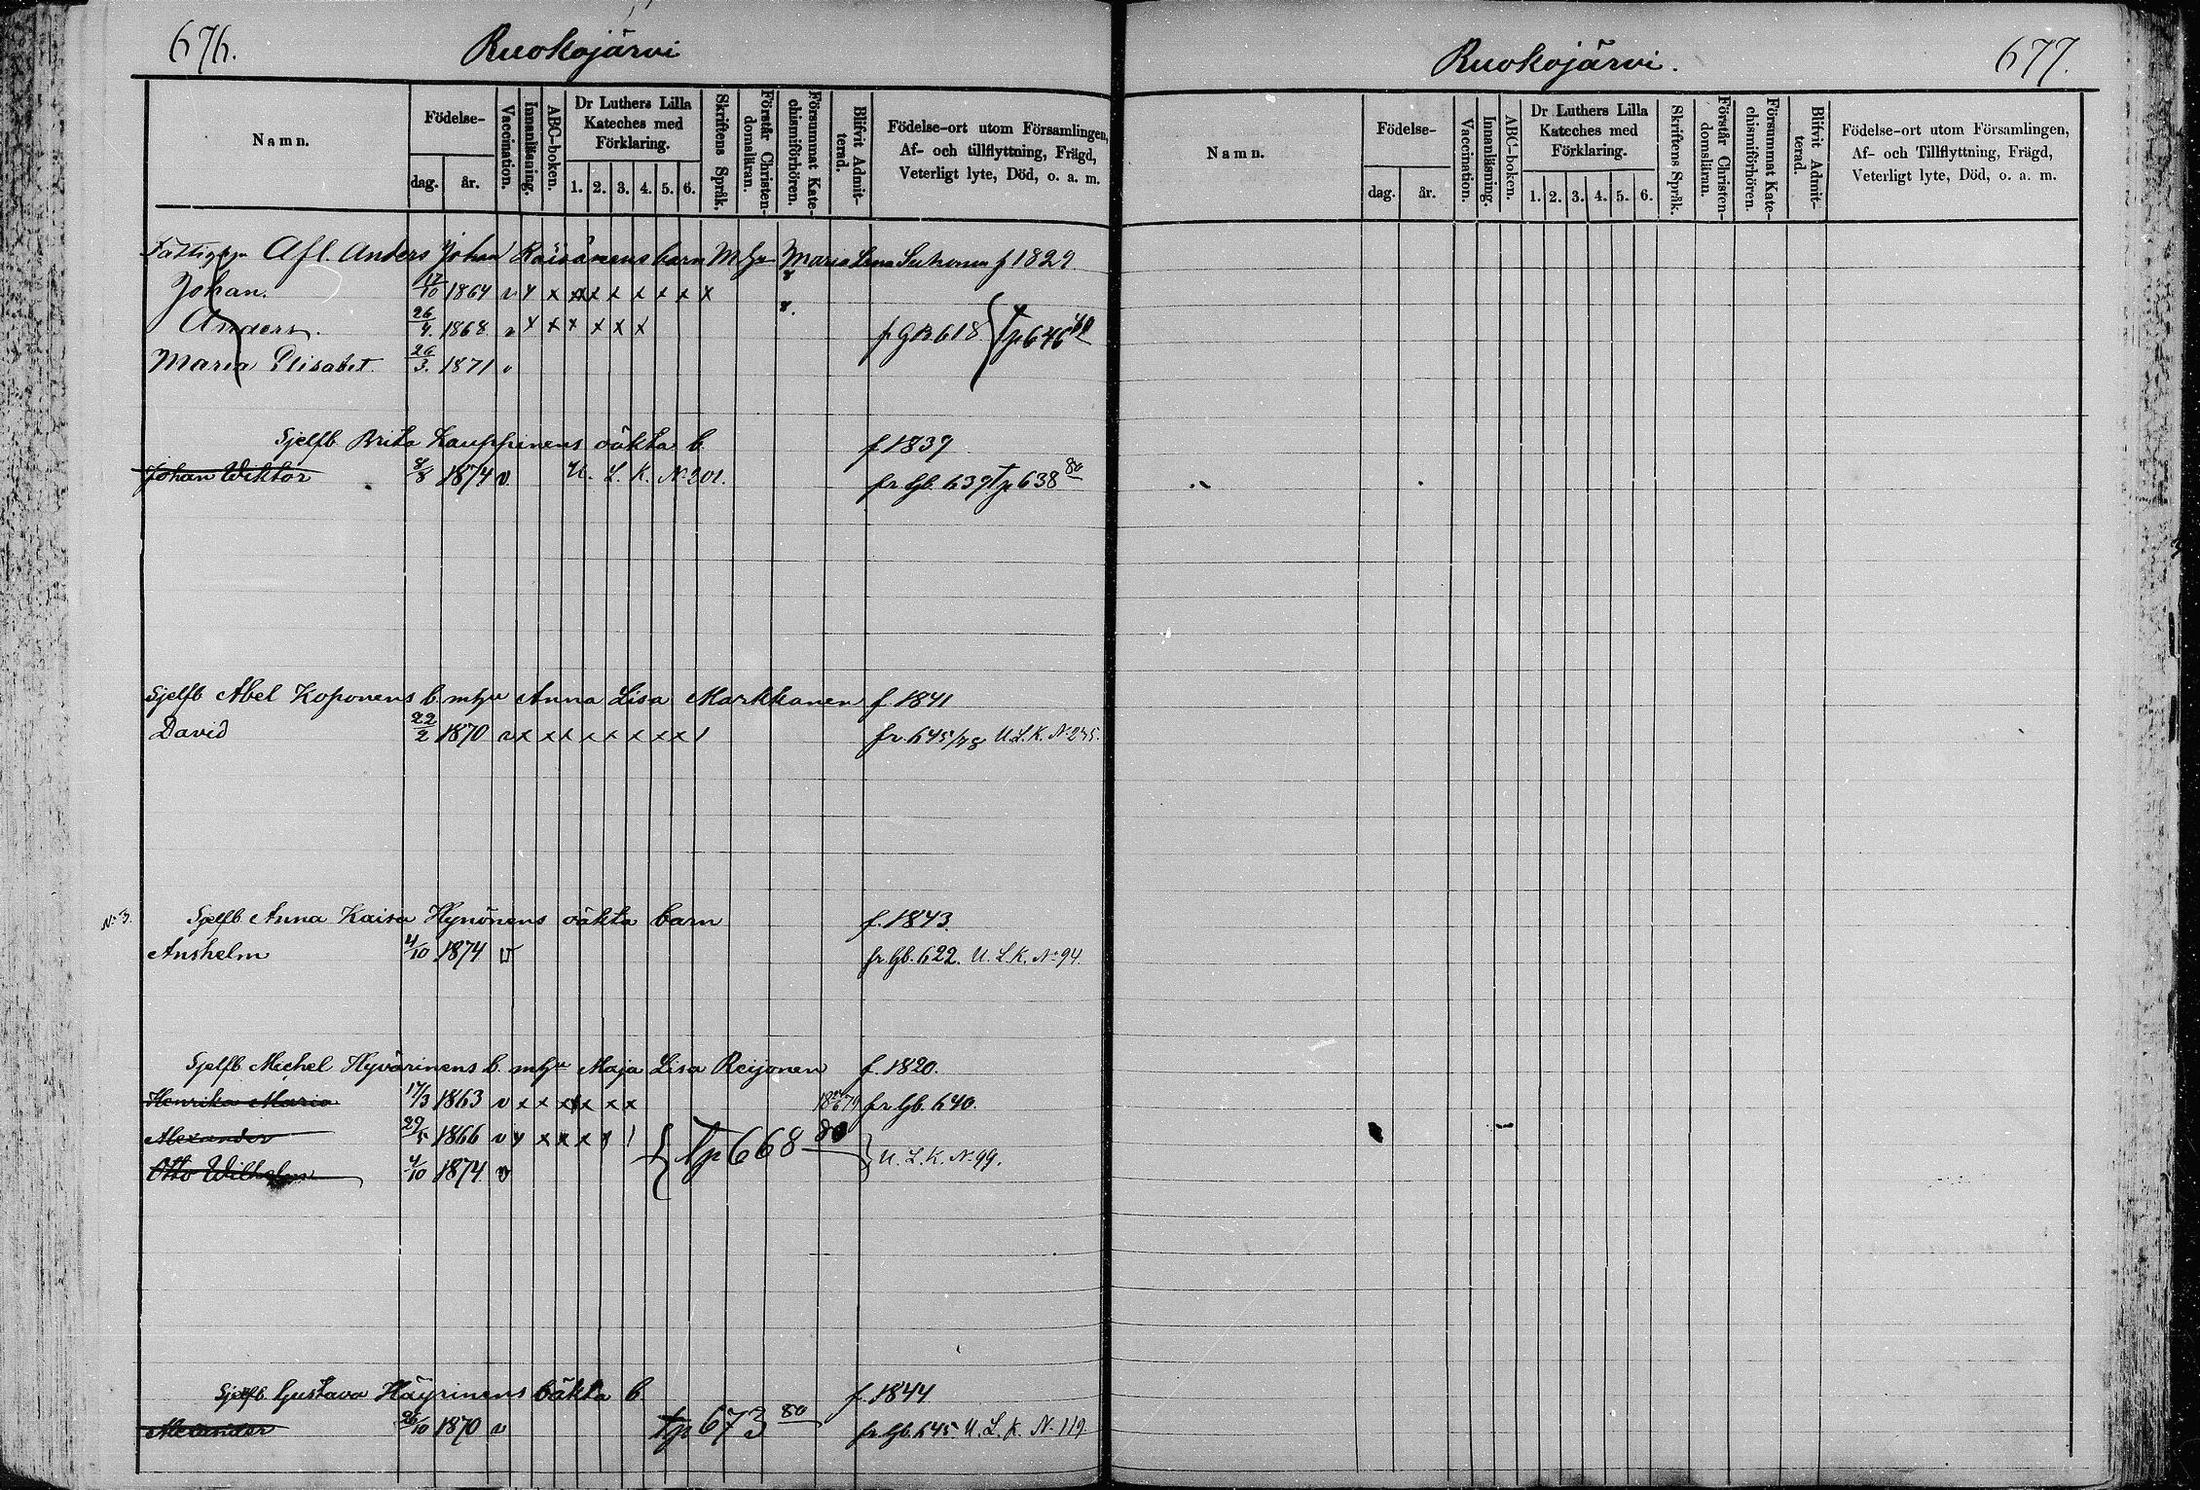 676.
Ruokojärvi
Namn.
Födelse-
dag.
år.
Vaccination.
Innanläsning.
ABC-boken.
Dr Luthers Lilla
Kateches med
Förklaring.
1. 2. 3. 4. 5. 6.
Skriftens Språk.
Förstår Christen-
domsläran.
Försummat Kate-
chismiförhören.
Blifvit Admit-
terad.
Födelse-ort utom Församlingen,
Af- och tillflyttning, Frägd,
Veterligt lyte, Död, o. a. m.
Afl. Anders Johan Räisänens barn Maria Lena f 1829
Johan. 17/10 1864 v x x x x x x x x x
Anders. 26/4. 1868 v x x x x x x f GB 618 tp 646 80
Maria Elisabet. 26/3. 1871 v
Sjelfb Brita Kauppinens oäkta b. f 1839
Johan Wiktor 8/8 1874 v. U. L. K. No 201. fr Gb. 639 tp 638 80
Sjelfb Abel Koponens b. m hu Anna Lisa Markkanen f 1841
David 22/2 1870 v x x x x x x x x / fr. 645/78 U.L.K. No 245.
No 3. Sjelfb Anna Kaisa Hynönens oäkta barn f. 1843.
Anshelm 4/10 1874 v fr Gb. 622. U. L.K. No 94.
Sjelfb Michel Hyvärinens b. m hu Maja Lisa Reijonen f. 1820.
Henrika Maria 17/3 1863 v x x x x x x x fr Gb. 640.
Alexander 29/5 1866 v x x x x x / tp 668 80
Otto Wilhelm 4/10 1874 v U. L. K. No 99.
Sjelfb. Gustava Häyrinens oäkta b f. 1844
Alexander 26/10 1870 v tp 673 80 fr Gb. 645. U. L. K. No 119
Ruokojärvi.
677.
Namn.
Födelse-
dag.
år.
Vaccination.
Innanläsning.
ABC-boken.
Dr Luthers Lilla
Kateches med
Förklaring.
1. 2. 3. 4. 5. 6.
Skriftens Språk.
Förstår Christen-
domsläran.
Försummat Kate-
chismiförhören.
Blifvit Admit-
terad.
Födelse-ort utom Församlingen,
Af- och Tillflyttning, Frägd,
Veterligt lyte, Död, o. a. m.